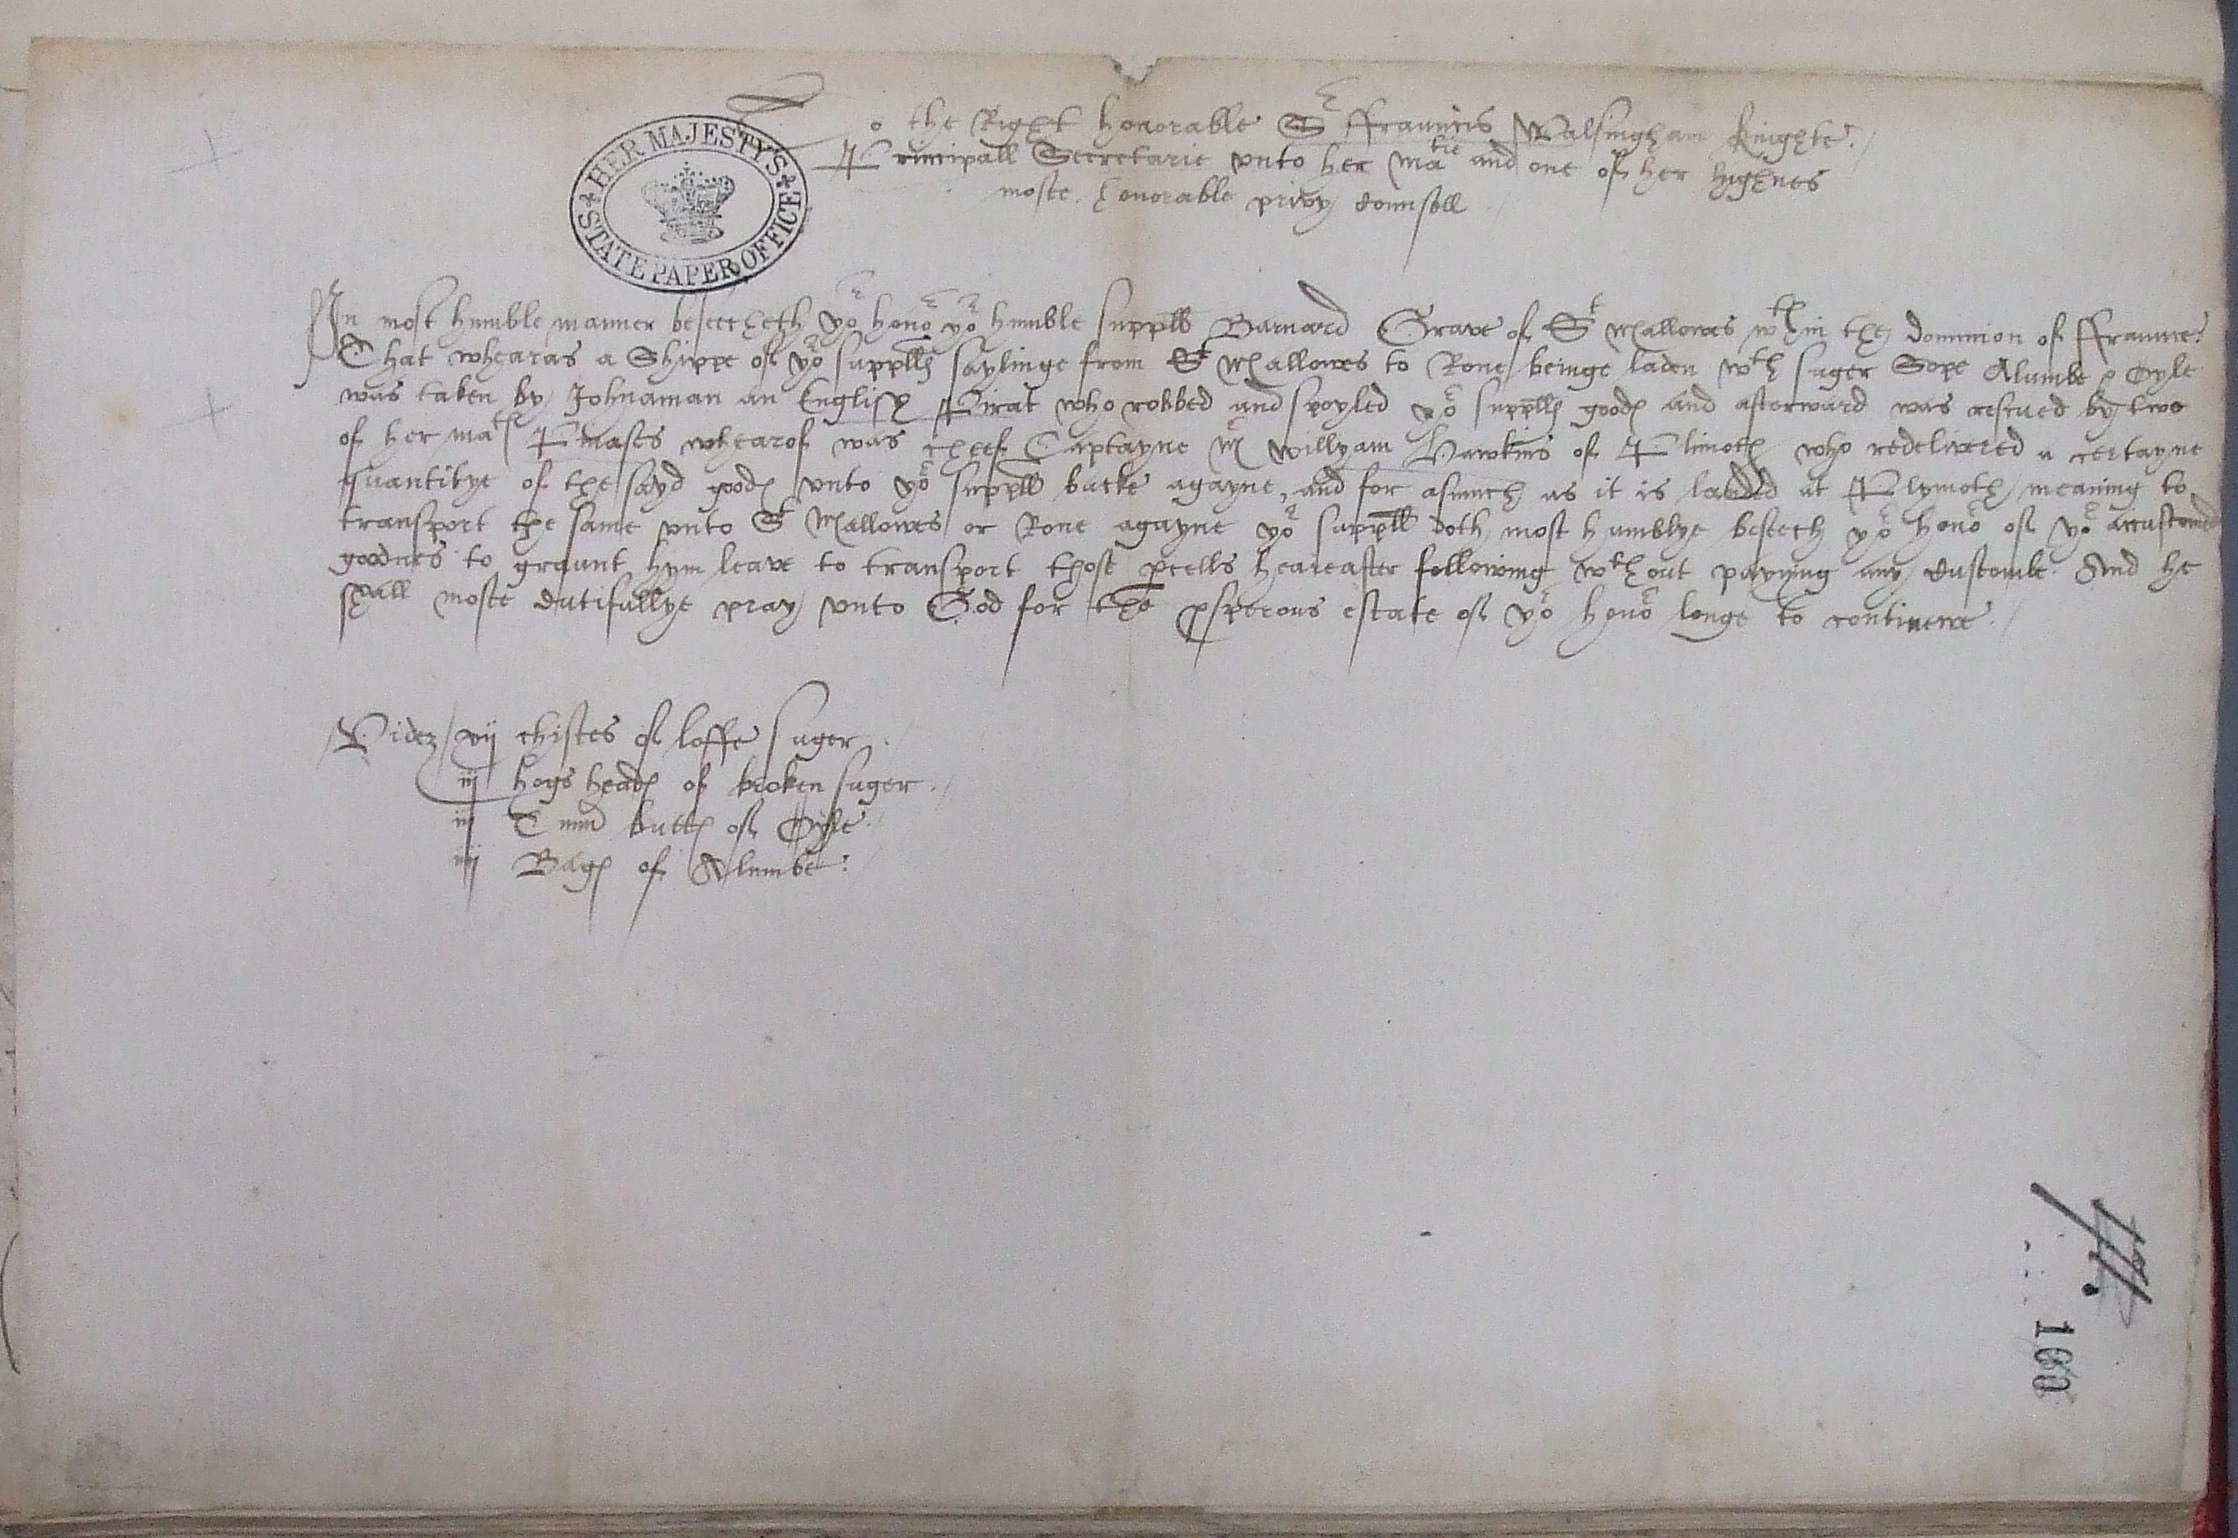 To the Right honorable Sr ffrauncis Walsingham Knighte.
Principall Secretarie vnto her Matie and one of her highnes
moste honorable privy Counsell
HER MAJESTY'S STATE PAPER OFFICE
In most humble manner beseecheth yor honor yor humble suppllt Barnard Grave of St Mallowes wthin the dominion of ffraunce.
That whearas a Shippe of yor suppllts saylinge from St Mallowes to Rone beinge laden wth suger Sope Alumbe & Oyle
was taken by Johnaman an English Pirat who robbed and spoyled yor suppllts goodes and afterward was rescued by two
of her mats whearof was cheef Captayne Mr Willyam Hawkins of Plimoth who redelivered a certayne
quantitye of the sayd goodes vnto yor suppllt backe agayne, and for asmuch as it is landed at Plymoth meaning to
transport the same vnto St Mallowes or Rone agayne yor suppllt doth most humblye beseech yor honor of yor accustomed
goodnes to graunt hym leave to transport those pcells heareafter following wthout payying any Custombe. And he
shall moste dutifullye pray vnto God for the psperous estate of yor honor longe to continewe.
Videz vij chistes of loffe suger
iij hogsheades of broken suger.
iij buttes of Oyle.
iiij Bages of Alumbe:
160